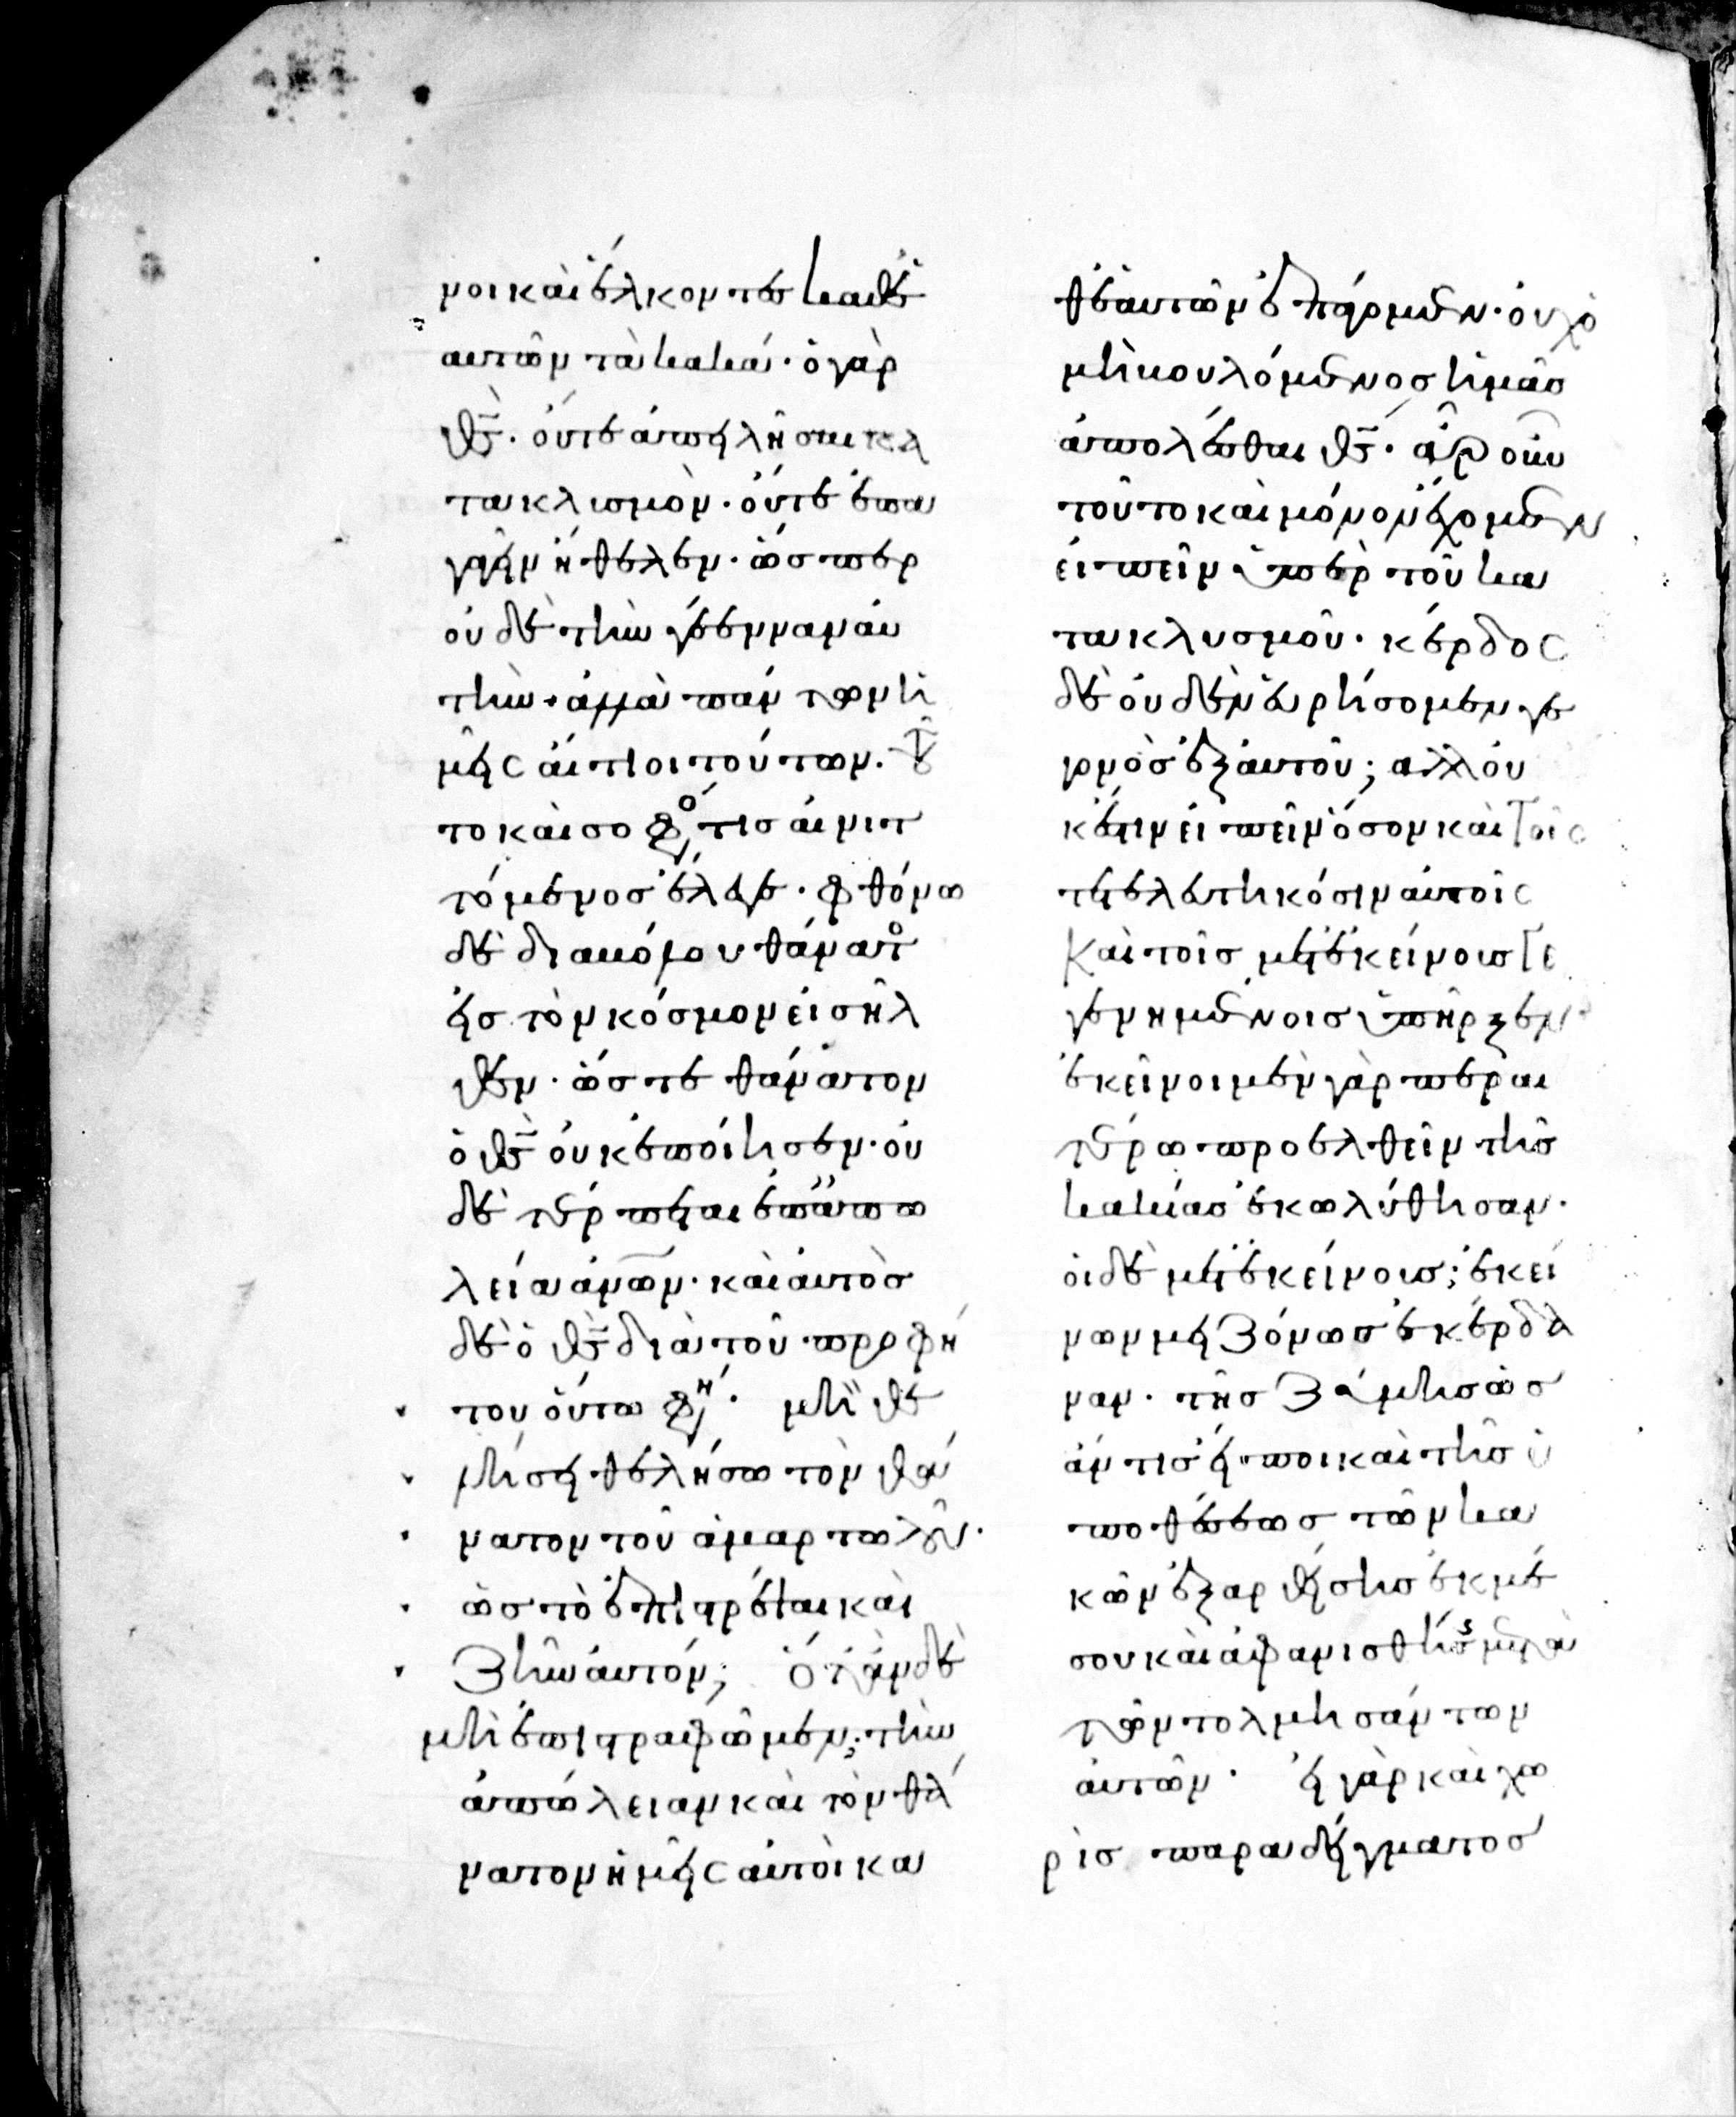 νοι καὶ ἕλκοντες καθ' ἑ
αυτῶν τὰ κακά· ὁ γὰρ
θς̄· οὔτε ἀπειλῆσαι κα
τακλυσμὸν· οὔτε ἐπα
γαγεῖν ἤθελεν· ὥσπερ
οὐδὲ τὴν γέενναν αὐ
τὴν· ἀλλὰ πάντων ἡ
μεῖς αἴτιοι τούτων· τοῦ
το καὶ σοφός τις αἰνιτ
τόμενος ἔλεγε· φθόνω
δὲ διαβόλου θάνατο
εἰς τὸν κόσμον εἰσῆλ
θεν· ὥστε θάνατον
ὁ θς̄ οὐκ ἐποίησεν· οὐ
δὲ τέρπεται ἐπ' ἀπω
λεία ἀνων· καὶ αὐτὸς
δὲ ὁ θς̄ διὰ τοῦ προφή
του οὕτω φη· μὴ θε
λήσει θελήσω τὸν θά
νατον τοῦ ἁμαρτωλοῦ·
ὡς τὸ ἐπιστρέψαι καὶ
ζῆν αὐτόν; ὅταν δὲ
μὴ ἐπιστραφῶμεν; τὴν
ἀπώλειαν καὶ τὸν θά
νατον ἡμεῖς αὐτοὶ κα
θ' ἑαυτῶν ἐσπάραμεν· οὐχ ὁ
μὴ βουλόμενος ἡμᾶς
ἀπολέσθαι θς̄· ἆρ' οὖν
τοῦτο καὶ μόνον ἔχομεν
εἰπεῖν ὑπὲρ τοῦ κα
τακλυσμοῦ· κέρδος
δὲ οὐδὲν εὑρήσομεν γε
γονὸς ἐξ αὐτοῦ; ἀλλ' οὐ
κ ἔστιν εἰπεῖν ὅσον καὶ τοῖς
τετελευτηκόσιν αὐτοῖς
καὶ τοῖς μετ' ἐκείνοις γε
γενημένοις ὑπῆρξεν
ἐκεῖνοι μὲν γὰρ περαι
τέρω προελθεῖν τῆς
κακίας ἐκωλύθησαν·
οἱ δὲ μετ' ἐκείνοις; ἐκεί
νων μειζόνως ἐκέρδα
ναν· τῆς ζύμης ὡς
ἄν τις εἴποι καὶ τῆς ὑ
ποθέσεως τῶν κα
κῶν ἐξαρθείσης ἐκ μέ
σου καὶ ἀφανισθείσης μετὰ
τῶν τολμησάντων
αὐτῶν· εἰ γὰρ καὶ χω
ρὶς παραδείγματος